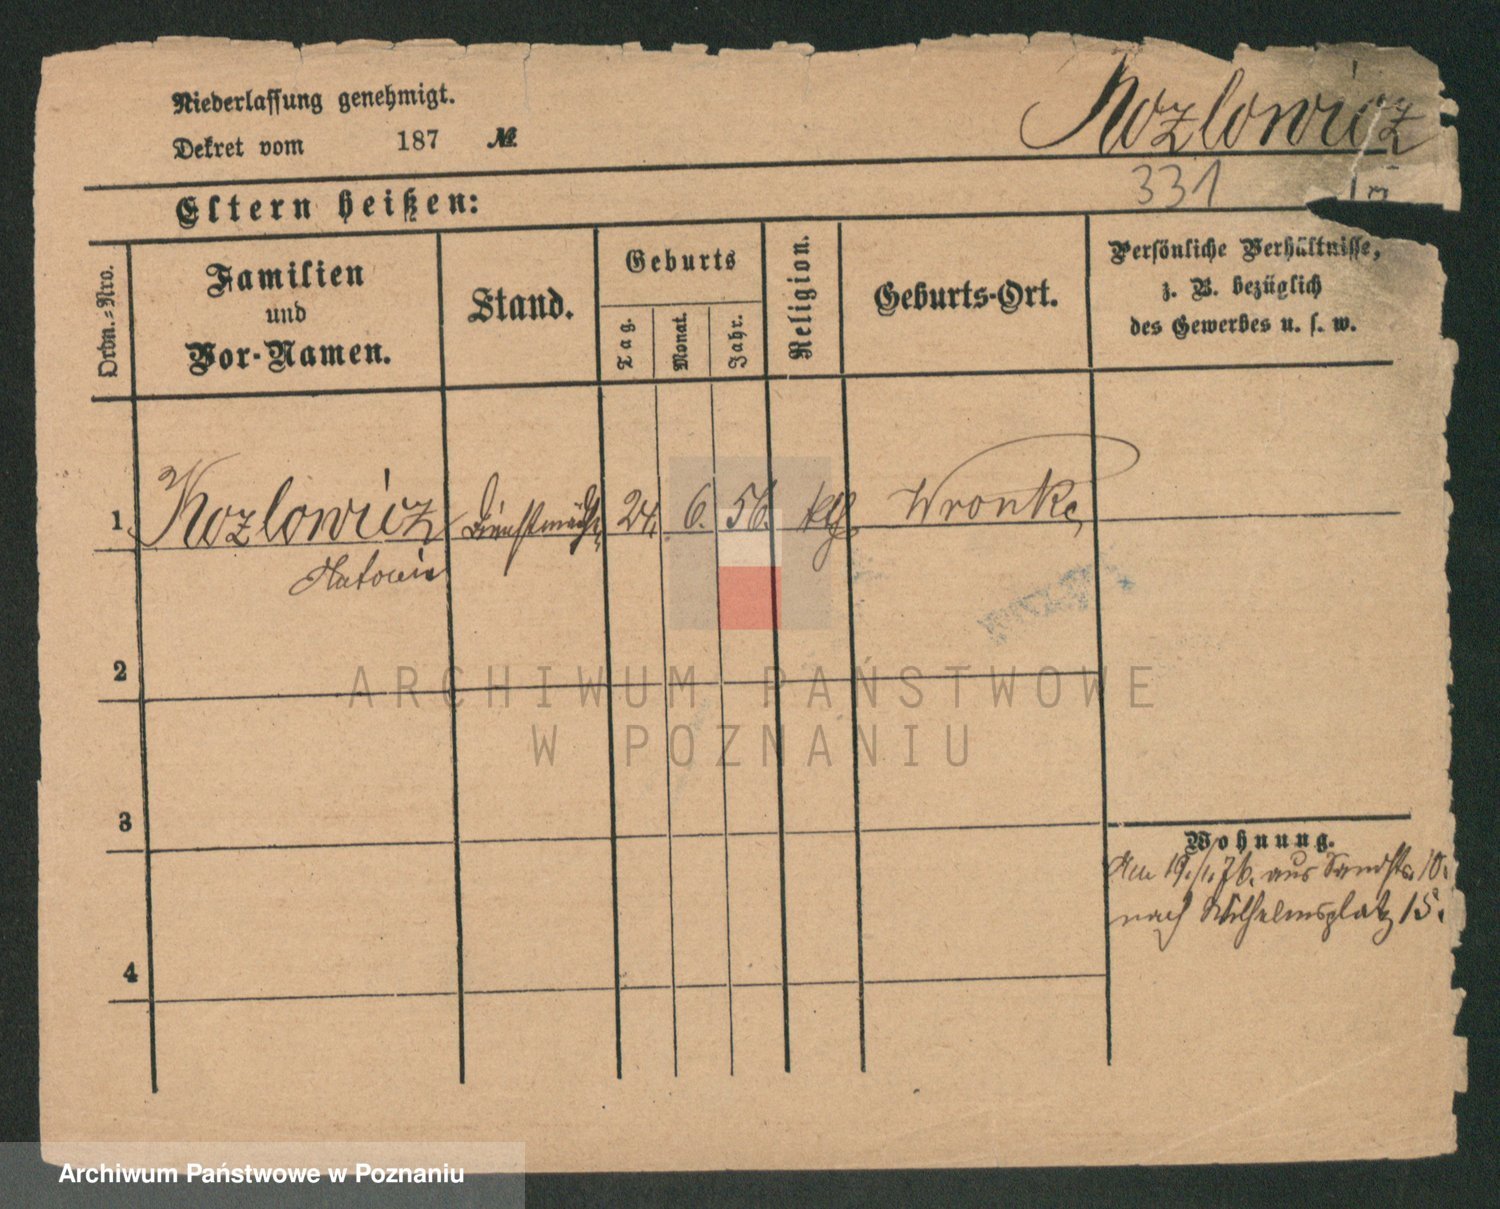 Niederlassung genehmigt.
Dekret vom 187 №
Kozlowicz
331
Eltern heißen:
Ordn.-Nro.
Familien
und
Vor-Namen.
Stand.
Geburts
Tag.
Monat.
Jahr.
Religion.
Geburts-Ort.
Persönliche Verhältnisse,
z. B. bezüglich
des Gewerbes u. s. w.
1 Kozlowicz 24. 6. 56. kth Wronke
2
3
4
Wohnung.
Am 19./1. 76. aus Sandstr. 10.
nach Wilhelmsplatz 15.
ARCHIWUM PAŃSTWOWE
W POZNANIU
Archiwum Państwowe w Poznaniu